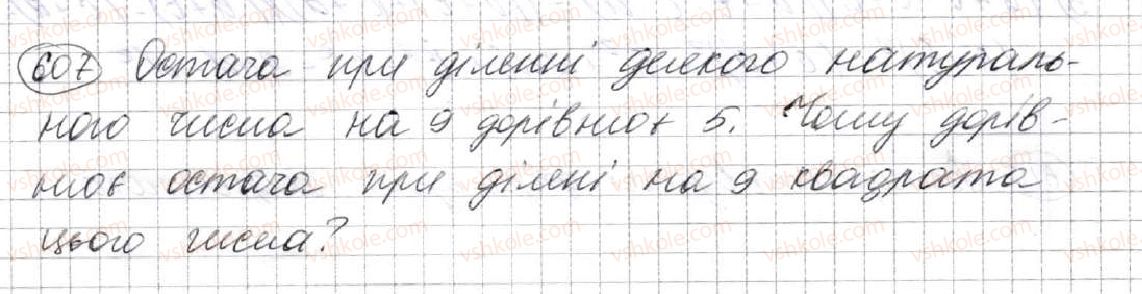 607 Остача при діленні деякого натураль-
ного числа на 9 дорівнює 5. Чому дорів-
нює остача при ділені на 9 квадрата
цього числа?